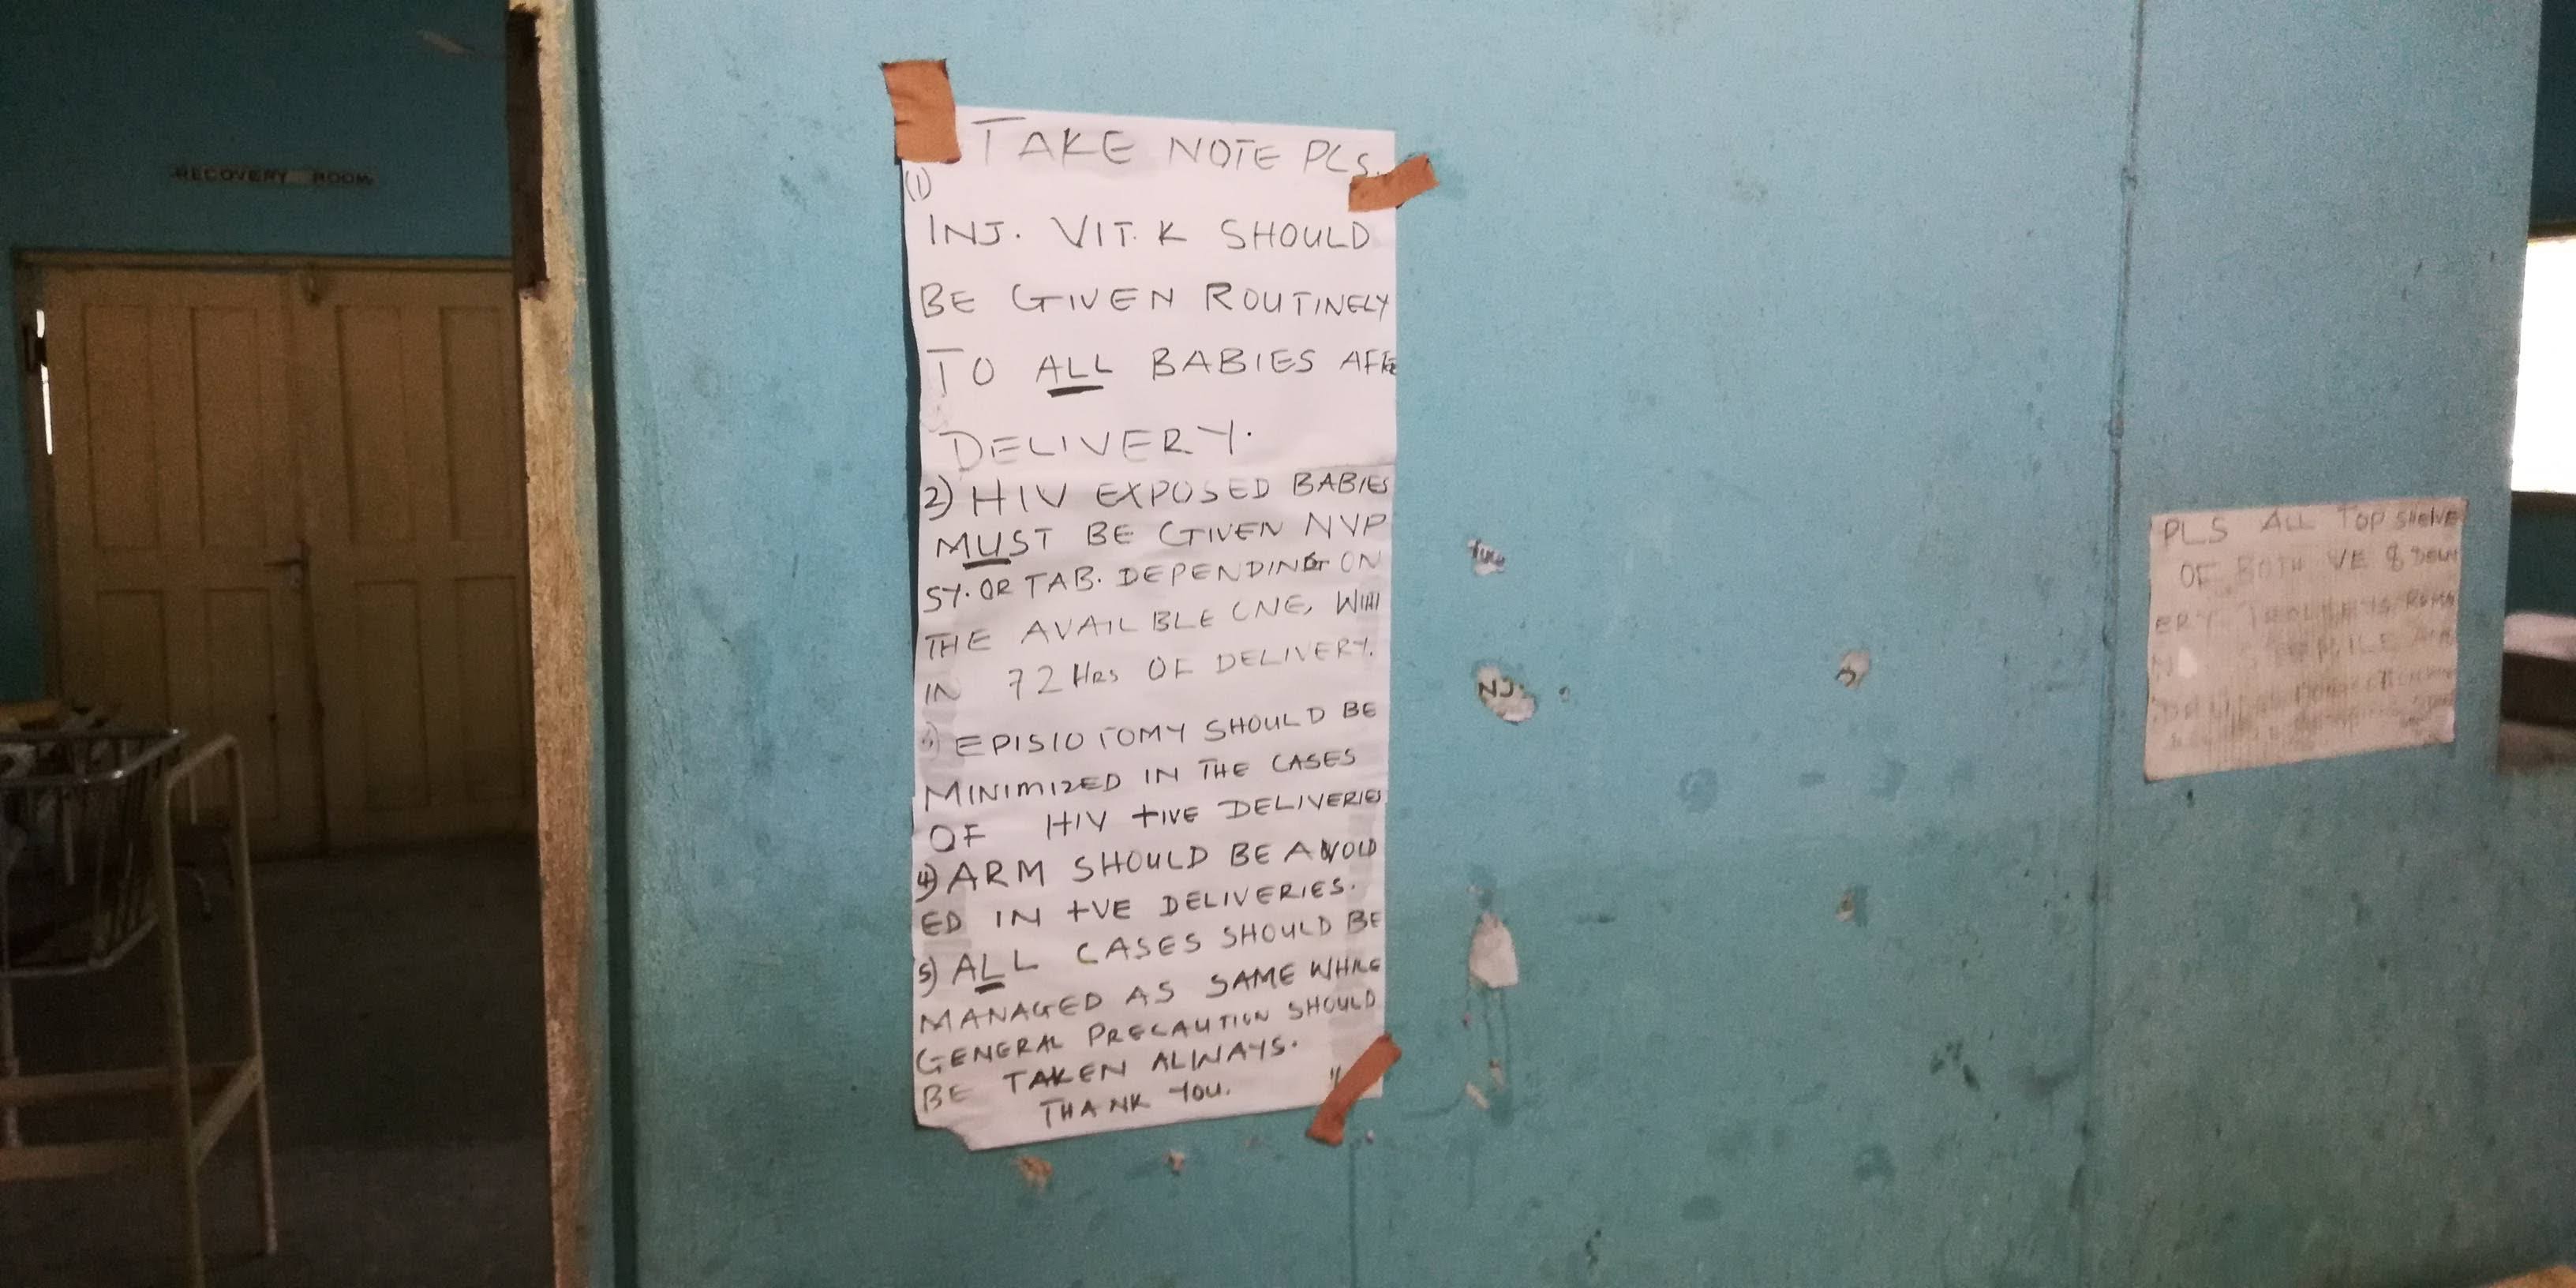 RECOVERY ROOM
TAKE NOTE PLS.
(1)
INJ. VIT. K SHOULD
BE GIVEN ROUTINELY
TO ALL BABIES AFTE
DELIVERY.
2) HIV EXPOSED BABIES
MUST BE GIVEN NVP
SY. OR TAB. DEPENDING ON
THE AVAILBLE ONE, WITH
IN 72 Hrs OF DELIVERY.
3) EPISIOTOMY SHOULD BE
MINIMIZED IN THE CASES
OF HIV +IVE DELIVERIES
4) ARM SHOULD BE AVOID
ED IN +VE DELIVERIES.
5) ALL CASES SHOULD BE
MANAGED AS SAME WHILE
GENERAL PRECAUTION SHOULD
BE TAKEN ALWAYS.
THANK YOU.
NJ.
PLS ALL TOP SHELVE
OF BOTH VE & DELIV
ERY TROLLEYS
STERILE